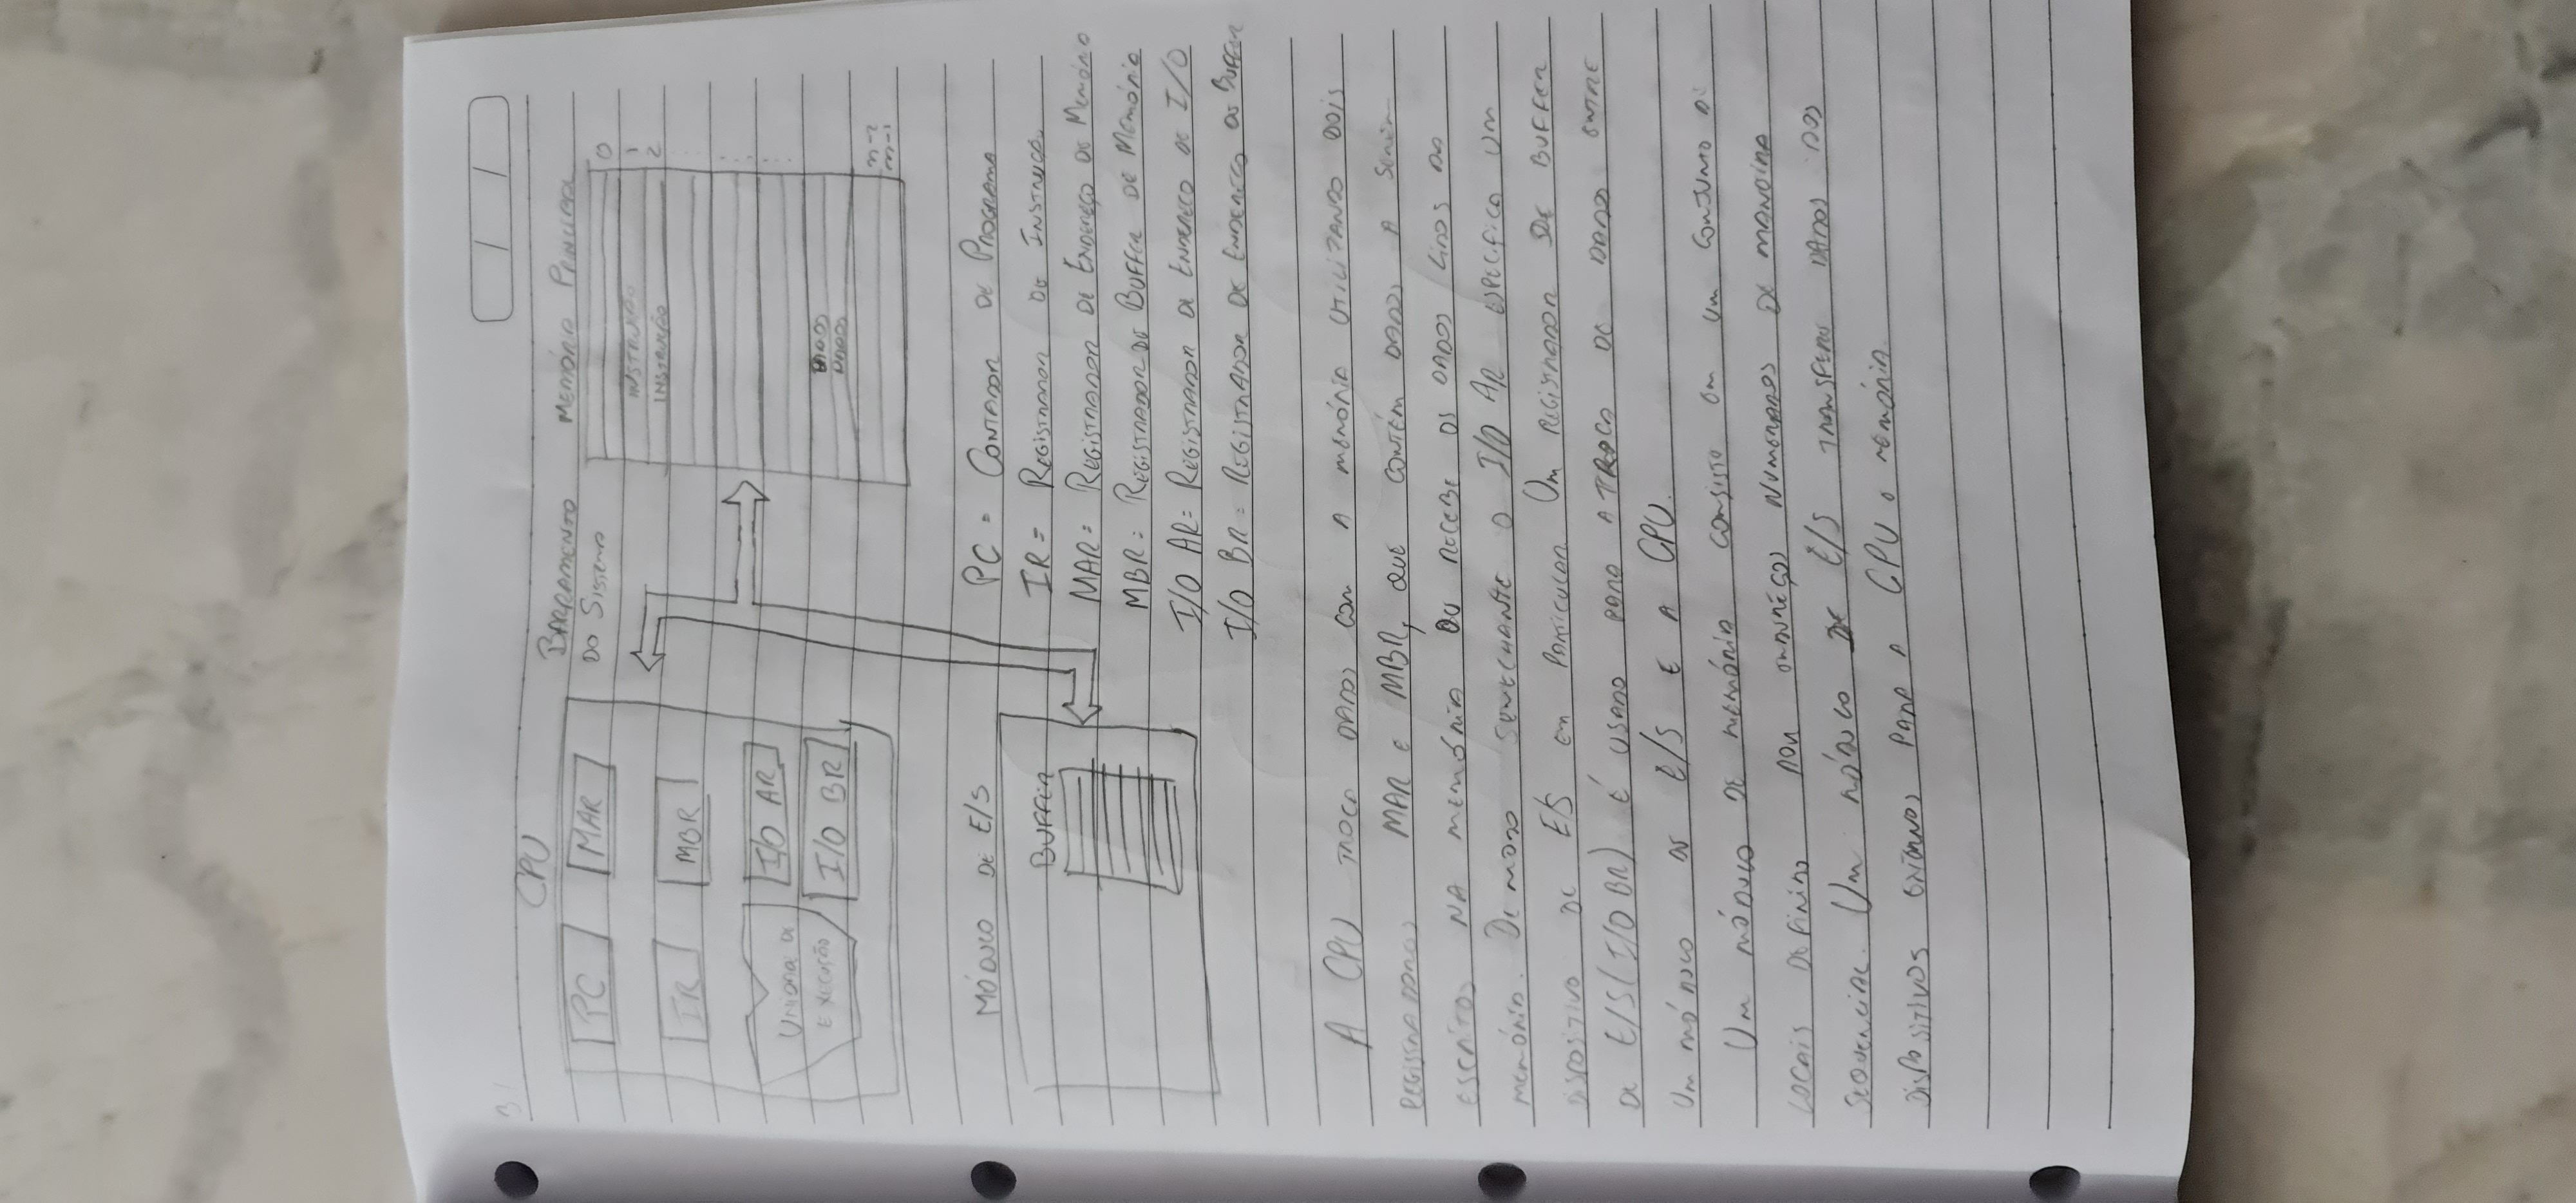 3/
CPU
BARRAMENTO
DO SISTEMA
MEMÓRIA PRINCIPAL
PC
MAR
IR
MBR
UNIDADE DE
EXECUÇÃO
I/O AR
I/O BR
INSTRUÇÃO
INSTRUÇÃO
DADOS
DADOS
0
1
2
n-2
n-1
MÓDULO DE E/S
BUFFER
PC = CONTADOR DE PROGRAMA
IR = REGISTRADOR DE INSTRUÇÃO
MAR = REGISTRADOR DE ENDEREÇO DE MEMÓRIA
MBR = REGISTRADOR DE BUFFER DE MEMÓRIA
I/O AR = REGISTRADOR DE ENDEREÇO DE I/O
I/O BR = REGISTRADOR DE ENDEREÇO DE BUFFER
A CPU TROCA DADOS COM A MEMÓRIA UTILIZANDO DOIS
REGISTRADORES MAR E MBR, QUE CONTÉM DADOS A SEREM
ESCRITOS NA MEMÓRIA OU RECEBE OS DADOS LIDOS DA
MEMÓRIA. DE MODO SEMELHANTE O I/O AR ESPECIFICA UM
DISPOSITIVO DE E/S EM PARTICULAR UM REGISTRADOR DE BUFFER
DE E/S (I/O BR) É USADO PARA A TROCA DE DADOS ENTRE
UM MÓDULO DE E/S E A CPU.
UM MÓDULO DE MEMÓRIA CONSISTE EM UM CONJUNTO DE
LOCAIS DEFINIDOS POR ENDEREÇOS NUMERADOS DE MANEIRA
SEQUENCIAL. UM MÓDULO DE E/S TRANSFERE DADOS DOS
DISPOSITIVOS EXTERNOS PARA A CPU E MEMÓRIA.